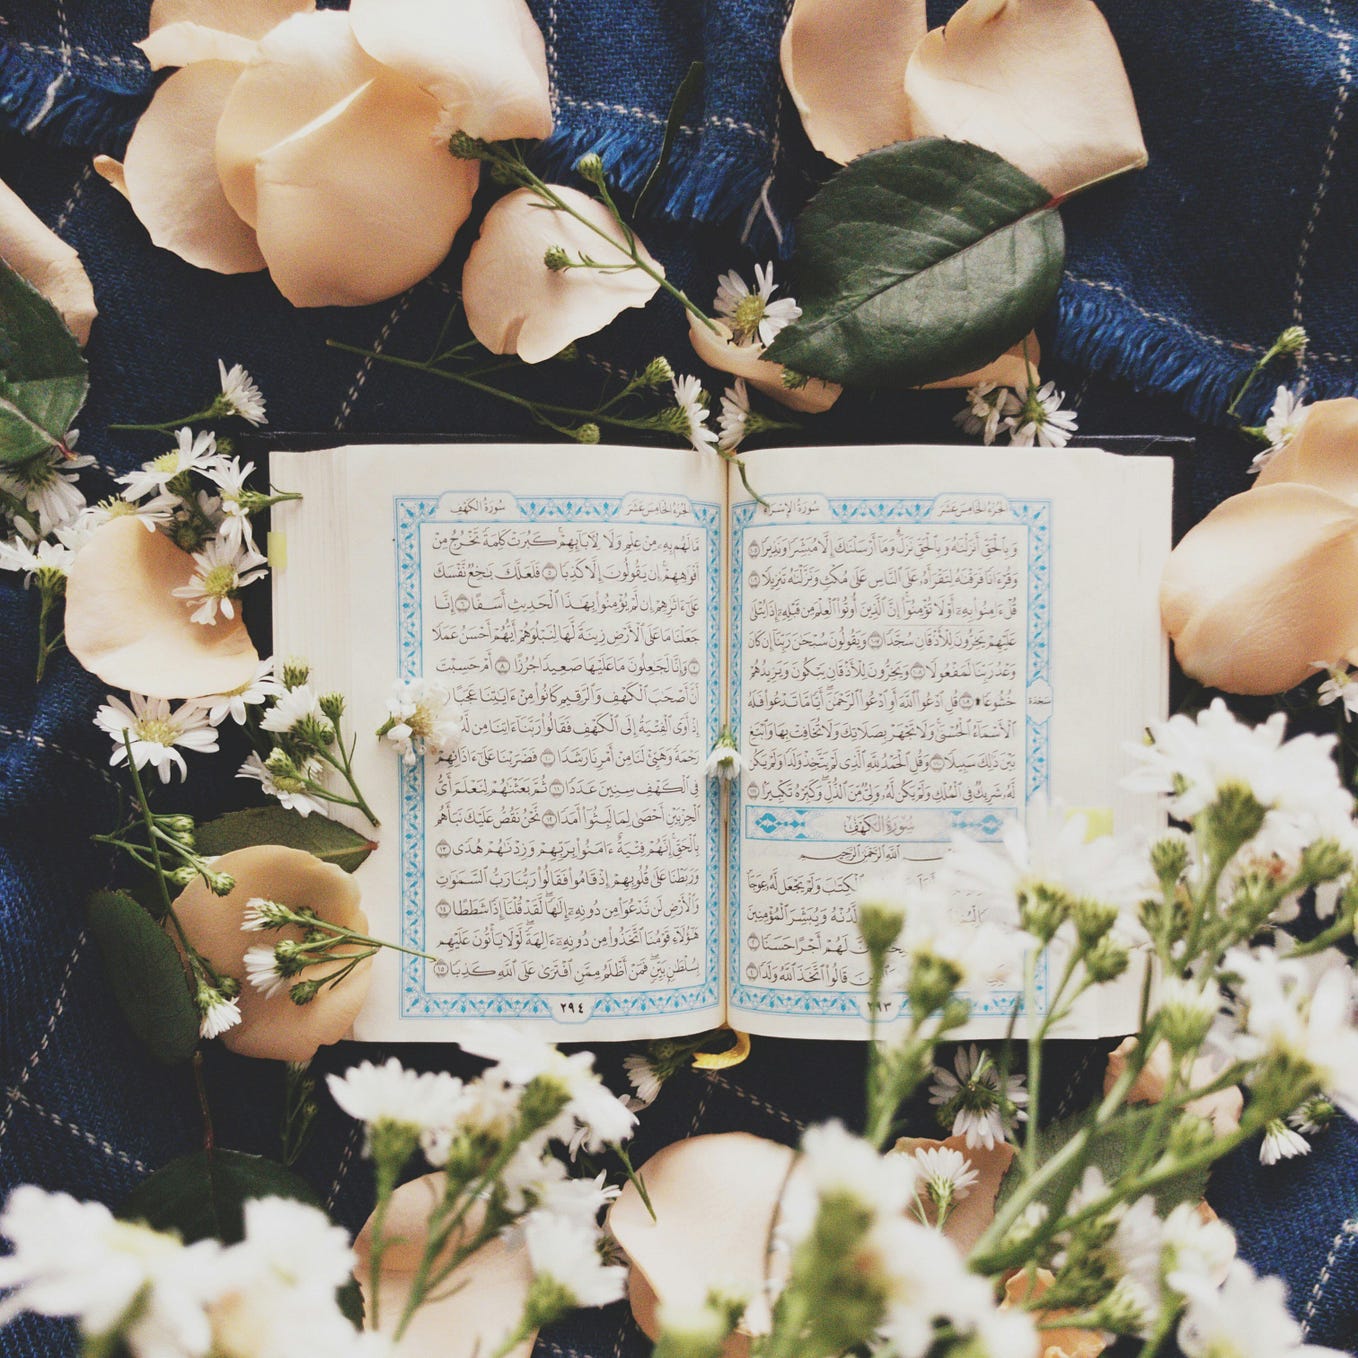 الجُزْءُ الخَامِسَ عَشَرَ سُورَةُ الإِسْرَاءِ
وَبِٱلْحَقِّ أَنزَلْنَٰهُ وَبِٱلْحَقِّ نَزَلَۗ وَمَآ أَرْسَلْنَٰكَ إِلَّا مُبَشِّرًا وَنَذِيرًا ١٠٥
وَقُرْءَانًا فَرَقْنَٰهُ لِتَقْرَأَهُۥ عَلَى ٱلنَّاسِ عَلَىٰ مُكْثٍ وَنَزَّلْنَٰهُ تَنزِيلًا ١٠٦
قُلْ ءَامِنُوا۟ بِهِۦٓ أَوْ لَا تُؤْمِنُوٓا۟ۚ إِنَّ ٱلَّذِينَ أُوتُوا۟ ٱلْعِلْمَ مِن قَبْلِهِۦٓ إِذَا يُتْلَىٰ
عَلَيْهِمْ يَخِرُّونَ لِلْأَذْقَانِ سُجَّدًا ١٠٧ وَيَقُولُونَ سُبْحَٰنَ رَبِّنَآ إِن كَانَ
وَعْدُ رَبِّنَا لَمَفْعُولًا ١٠٨ وَيَخِرُّونَ لِلْأَذْقَانِ يَبْكُونَ وَيَزِيدُهُمْ
خُشُوعًا۩ ١٠٩ قُلِ ٱدْعُوا۟ ٱللَّهَ أَوِ ٱدْعُوا۟ ٱلرَّحْمَٰنَۖ أَيًّا مَّا تَدْعُوا۟ فَلَهُ
سَجْدَة
ٱلْأَسْمَآءُ ٱلْحُسْنَىٰۚ وَلَا تَجْهَرْ بِصَلَاتِكَ وَلَا تُخَافِتْ بِهَا وَٱبْتَغِ
بَيْنَ ذَٰلِكَ سَبِيلًا ١١٠ وَقُلِ ٱلْحَمْدُ لِلَّهِ ٱلَّذِى لَمْ يَتَّخِذْ وَلَدًا وَلَمْ يَكُن
لَّهُۥ شَرِيكٌ فِى ٱلْمُلْكِ وَلَمْ يَكُن لَّهُۥ وَلِىٌّ مِّنَ ٱلذُّلِّۖ وَكَبِّرْهُ تَكْبِيرًا ١١١
سُورَةُ الكَهْفِ
ٱللَّهِ ٱلرَّحْمَٰنِ ٱلرَّحِيمِ
ٱلْكِتَٰبَ وَلَمْ يَجْعَل لَّهُۥ عِوَجَا
لَّدُنْهُ وَيُبَشِّرَ ٱلْمُؤْمِنِينَ
لَهُمْ أَجْرًا حَسَنًا ٢
قَالُوا۟ ٱتَّخَذَ ٱللَّهُ وَلَدًا ٤
٢٩٣
الجُزْءُ الخَامِسَ عَشَرَ سُورَةُ الكَهْفِ
مَّا لَهُم بِهِۦ مِنْ عِلْمٍ وَلَا لِءَابَآئِهِمْۚ كَبُرَتْ كَلِمَةً تَخْرُجُ مِنْ
أَفْوَٰهِهِمْۚ إِن يَقُولُونَ إِلَّا كَذِبًا ٥ فَلَعَلَّكَ بَٰخِعٌ نَّفْسَكَ
عَلَىٰٓ ءَاثَٰرِهِمْ إِن لَّمْ يُؤْمِنُوا۟ بِهَٰذَا ٱلْحَدِيثِ أَسَفًا ٦ إِنَّا
جَعَلْنَا مَا عَلَى ٱلْأَرْضِ زِينَةً لَّهَا لِنَبْلُوَهُمْ أَيُّهُمْ أَحْسَنُ عَمَلًا
٧ وَإِنَّا لَجَٰعِلُونَ مَا عَلَيْهَا صَعِيدًا جُرُزًا ٨ أَمْ حَسِبْتَ
أَنَّ أَصْحَٰبَ ٱلْكَهْفِ وَٱلرَّقِيمِ كَانُوا۟ مِنْ ءَايَٰتِنَا عَجَبًا
إِذْ أَوَى ٱلْفِتْيَةُ إِلَى ٱلْكَهْفِ فَقَالُوا۟ رَبَّنَآ ءَاتِنَا مِن
رَحْمَةً وَهَيِّئْ لَنَا مِنْ أَمْرِنَا رَشَدًا ١٠ فَضَرَبْنَا عَلَىٰٓ ءَاذَانِهِمْ
فِى ٱلْكَهْفِ سِنِينَ عَدَدًا ١١ ثُمَّ بَعَثْنَٰهُمْ لِنَعْلَمَ أَىُّ
ٱلْحِزْبَيْنِ أَحْصَىٰ لِمَا لَبِثُوٓا۟ أَمَدًا ١٢ نَّحْنُ نَقُصُّ عَلَيْكَ نَبَأَهُم
بِٱلْحَقِّۚ إِنَّهُمْ فِتْيَةٌ ءَامَنُوا۟ بِرَبِّهِمْ وَزِدْنَٰهُمْ هُدًى ١٣
وَرَبَطْنَا عَلَىٰ قُلُوبِهِمْ إِذْ قَامُوا۟ فَقَالُوا۟ رَبُّنَا رَبُّ ٱلسَّمَٰوَٰتِ
وَٱلْأَرْضِ لَن نَّدْعُوَا۟ مِن دُونِهِۦٓ إِلَٰهًاۖ لَّقَدْ قُلْنَآ إِذًا شَطَطًا ١٤
هَٰٓؤُلَآءِ قَوْمُنَا ٱتَّخَذُوا۟ مِن دُونِهِۦٓ ءَالِهَةًۖ لَّوْلَا يَأْتُونَ عَلَيْهِم
بِسُلْطَٰنٍۭ بَيِّنٍۖ فَمَنْ أَظْلَمُ مِمَّنِ ٱفْتَرَىٰ عَلَى ٱللَّهِ كَذِبًا ١٥
٢٩٤